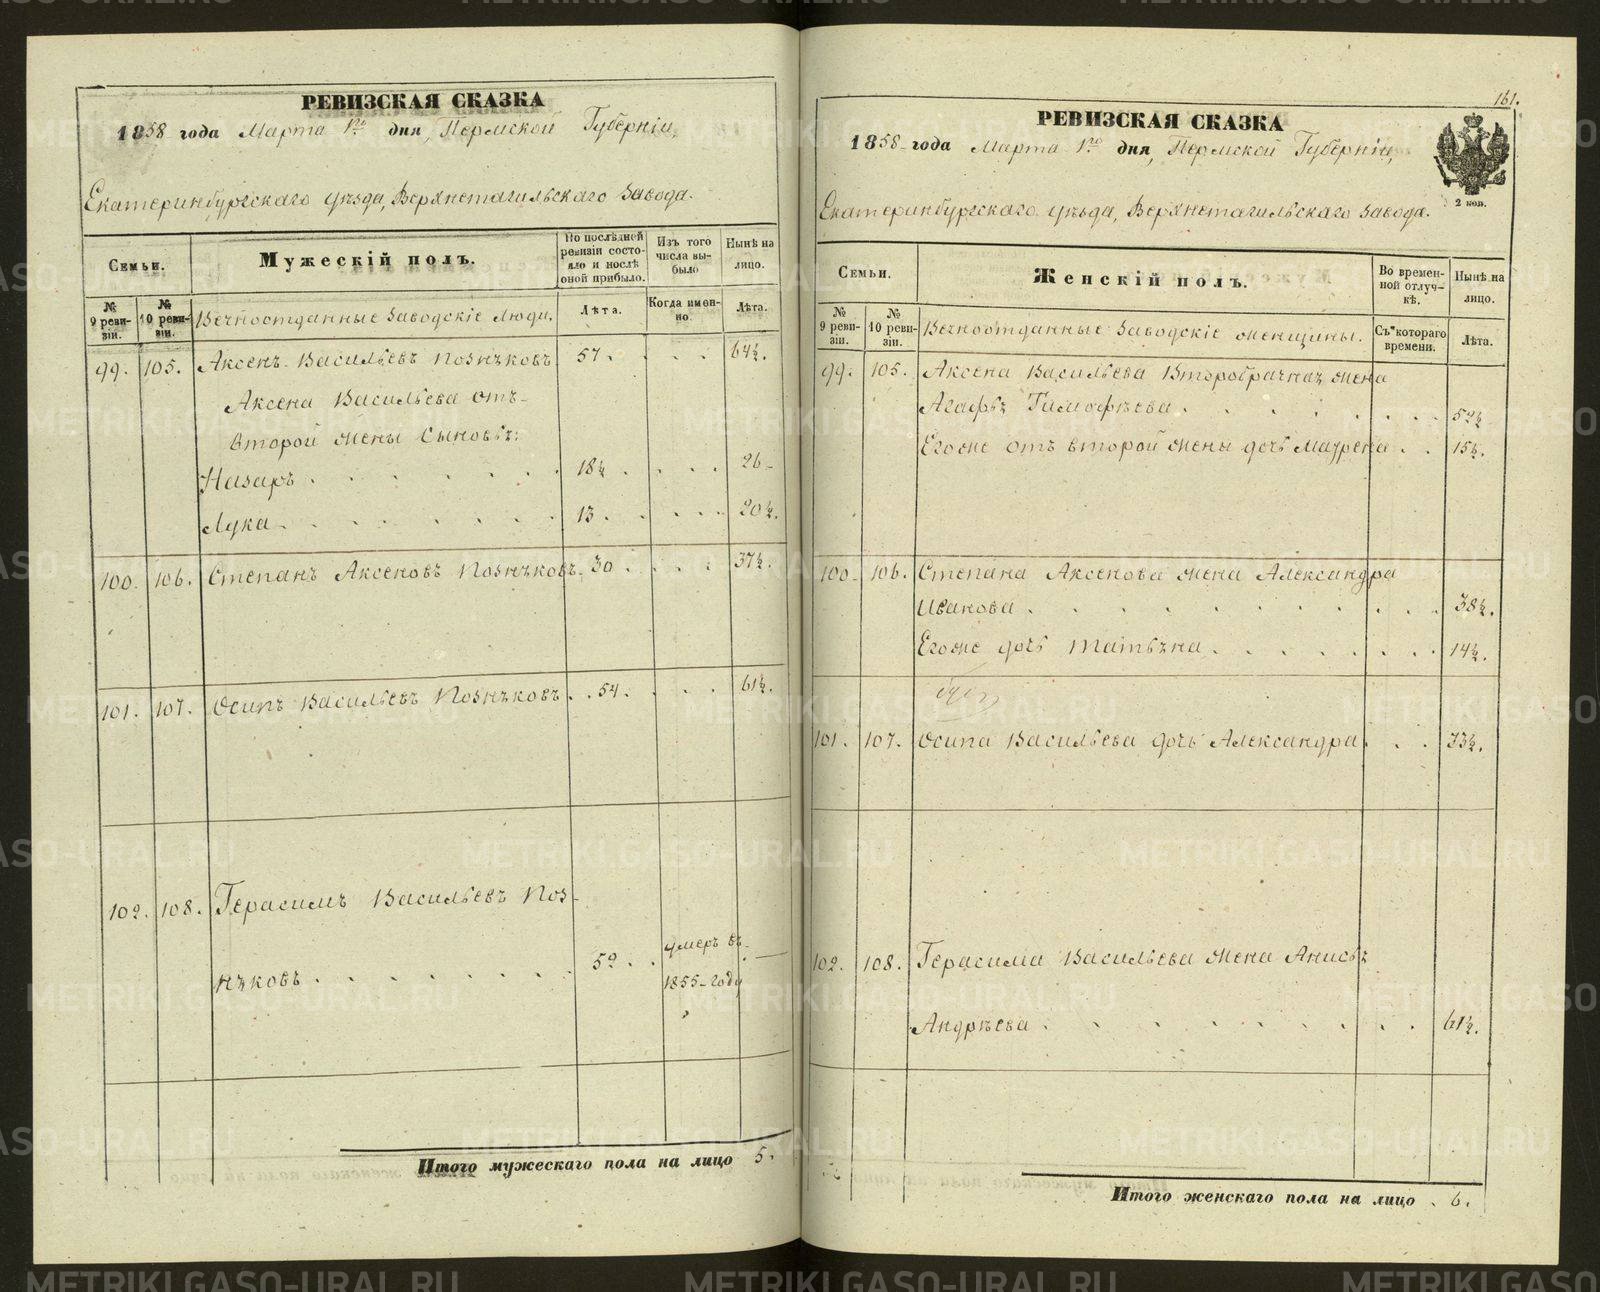 РЕВИЗСКАЯ СКАЗКА
1858 года Марта 1го дня, Пермской Губерніи,
Екатеринбургскаго уѣзда, Верхнетагильскаго завода.
Семьи.
Мужескій полъ.
По послѣдней ревизіи состояло и послѣ оной прибыло.
Изъ того числа выбыло
Нынѣ на лицо.
№ 9 ревизіи.
№ 10 ревизіи.
Вечноотданные Заводскіе Люди.
Лѣта.
Когда именно.
Лѣта.
99. 105. Аксенъ Васильевъ Познѣковъ 57. 64½.
Аксена Васильева отъ
второй жены сыновья:
Назаръ 18½. 26
Лука 13. 20½.
100. 106. Степанъ Аксеновъ Познѣковъ 30. 37½.
101. 107. Осипъ Васильевъ Познѣковъ 54. 61½.
102. 108. Герасимъ Васильевъ Поз-
нѣковъ 52. умеръ въ
1855 году
Итого мужескаго пола на лицо 5.
161.
РЕВИЗСКАЯ СКАЗКА
1858 года Марта 1го дня, Пермской Губерніи,
2 коп.
Екатеринбургскаго уѣзда, Верхнетагильскаго завода.
Семьи.
Женскій полъ.
Во временной отлучкѣ.
Нынѣ на лицо.
№ 9 ревизіи.
№ 10 ревизіи.
Вечноотданные Заводскіе женщины.
Съ котораго времени.
Лѣта.
99. 105. Аксена Васильева Второбрачная жена
Агафья Тимофѣева 52½
Егоже отъ второй жены дочь Маурена 15½.
100. 106. Степана Аксенова жена Александра
Иванова 38½.
Егоже дочь Татьяна 14½.
101. 107. Осипа Васильева дочь Александра 33½.
102. 108. Герасима Васильева жена Анисья
Андрѣева 61½.
Итого женскаго пола на лицо 6.
METRIKI.GASO-URAL.RU